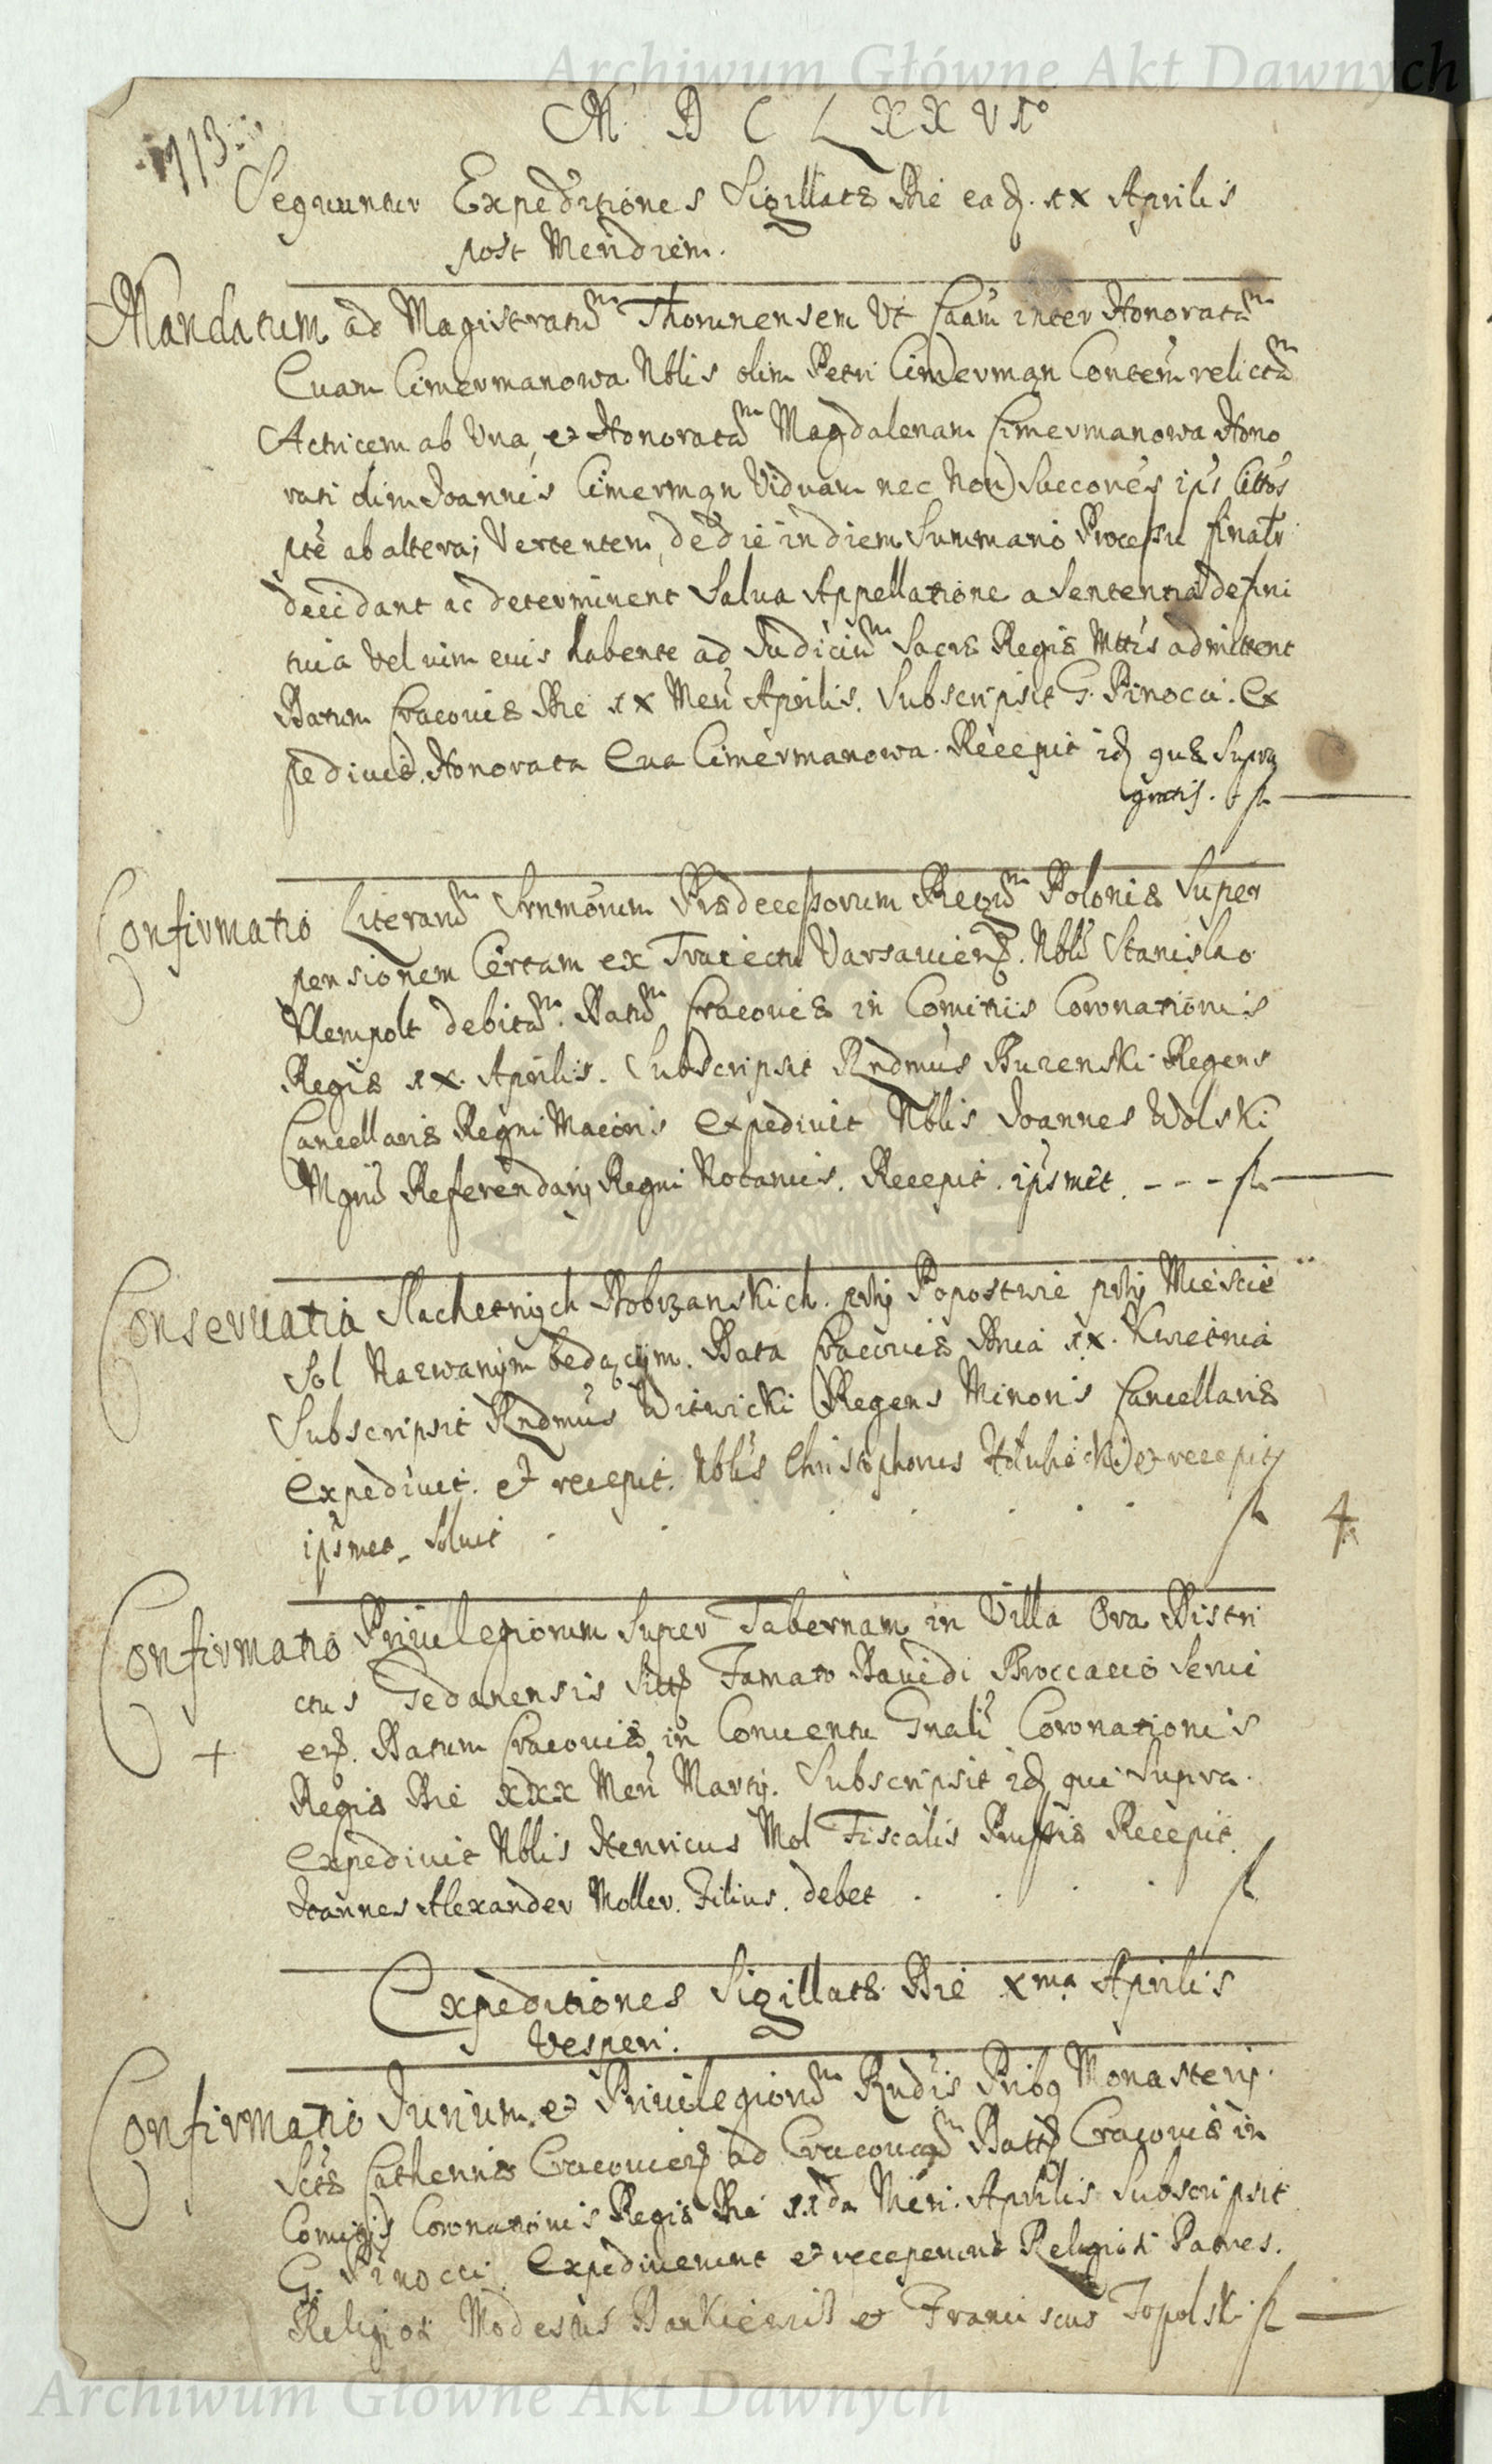 Archiwum Główne Akt Dawnych
M D C L X X V I°
113
Sequuntur Expeditiones Sigillatæ Die ead. ıx Aprilis
post Meridiem.
Mandatum ad Magistratum Thorunensem Ut Caam inter Honoratam
Euam Cimermanowa Nblis olim Petri Cimerman Contem relictam
Actricem ab Una, et Honoratam Magdalenam Cimermanowa Hono
rati olim Joannis Cimerman Viduam nec Non Succores ips Cittos
pte ab altera; Vertentem, de die in diem Summario Processu finalr
decidant ac determinent Salua Appellatione a Sententia defini
tiua Vel uim euis habente ad Judicium Sacræ Regiæ Mttis admittent
Datum Cracouiæ Die ıx Men Aprilis. Subscripsit G. Pinocci. Ex
pediuit. Honorata Eua Cimermanowa. Recepit id quæ Supra
gratis. fl
Confirmatio Literarum Srnmorum Prædecessorum Regum Poloniæ Super
pensionem Certam ex Traiectu Varsauien. Nbli Stanislao
Klempolt debitam. Datum Cracouiæ in Comitiis Coronationis
Regiæ ıx. Aprilis. Subscripsit Rndmus Burenski Regens
Cancellariæ Regni Maioris Expediuit Nblis Joannes Wolski
Mgni Referendarij Regni Notarius. Recepit. ipsmet. - - - fl
Conseruatia Slachetnych Dobrzanskich. przy Popostwie przy Miescie
Sol Nazwanym będącym. Data Cracouiæ Dnia ıx. Kwietnia
Subscripsit Rndmus Witwicki Regens Minoris Cancellariæ
Expediuit. et recepit. Nblis Christophorus et recepit
ipsmet soluit . . . . . . fl 4
Confirmatio Priuilegiorum Super Tabernam in Villa Ora Distri
ctus Gedanensis Famato Dauidi Broccacio Serui
en. Datum Cracouiæ in Conuentu Gnali Coronationis
+
Regiæ Die xxx Men Martij. Subscripsit id qui Supra.
Expediuit Nblis Henricus Mol Fiscalis Prussiæ Recepit
Joannes Alexander Moller. Filius. debet . . . . fl
Expeditiones Sigillatæ Die Xma Aprilis
Vesperi.
Confirmatio Jurium et Priuilegiorum Rndis Pribq Monasterij
Sctæ Catherinæ Cracouien ad Cracouiæ in
Comitijs Coronationis Regiæ Die Men. Aprilis Subscripsit
G. Pinocci. Expediuerunt et receperunt Religiosi Patres.
Religiosi Modestus et Franciscus Topolski fl
Archiwum Główne Akt Dawnych